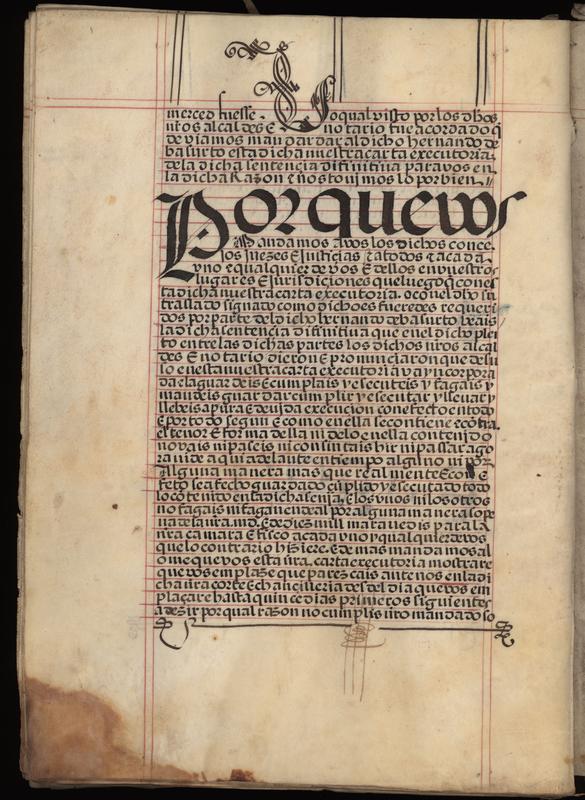 merced fuesse. Lo qual visto por los dhos
nr̃os alcaldes E notario fue acordado q̃
deviamos mandar dar al dicho hernando de
basurto esta dicha nuestra carta executoria
de la dicha sentencia difinitiva para vos en
la dicha Razon E nos tovimos lo por bien //
Porque vos
mandamos a vos los dichos conce-
jos juezes E justicias E a todos E a cada
vno E qualquier de vos E dellos en vuestros
lugares E jurisdiciones que luego q̃ con es
ta dicha nuestra carta executoria. o con el dho su
traslado signado como dicho es fueredes requeri
dos por parte del dicho hernando de basurto veais
la dicha sentencia difinitiva que en el dicho plei
to entre las dichas partes los dichos nr̃os alcal
des E notario dieron E pronunciaron que de su
so en esta nuestra carta executoria va yncorpora
da E la guardeis E cumplais y esecuteis y fagais y
mandeis guardar cumplir y esecutar y llevar y
lleveis a pura E devida execucion con efecto en todo
E por todo segun E como en ella se contiene E contra
el tenor E forma della ni de lo en ella contenido
no vais ni paseis ni consintais hir ni passar ago
ra ni de aqui adelante en tiempo alguno ni por
alguna manera mas que realmente E con E
feto sea fecho guardado cũplido y esecutado todo
lo contenido en la dicha senja. E los vnos ni los otros
no fagais ni fagan ende al por alguna manera so pe
na de la nr̃a. md. E de diez mill maravedis para la
nr̃a camara E fisco a cada vno y qualquier de vos
que lo contrario hiziere. E demas mandamos al
ome que vos esta nr̃a. carta executoria mostrare
que vos emplaze que parezcais ante nos en la di
cha nr̃a corte E chancilleria desdel dia que vos em
plazare hasta quinze dias primeros siguientes
a dezir por qual razon no cumplis nr̃o mandado so